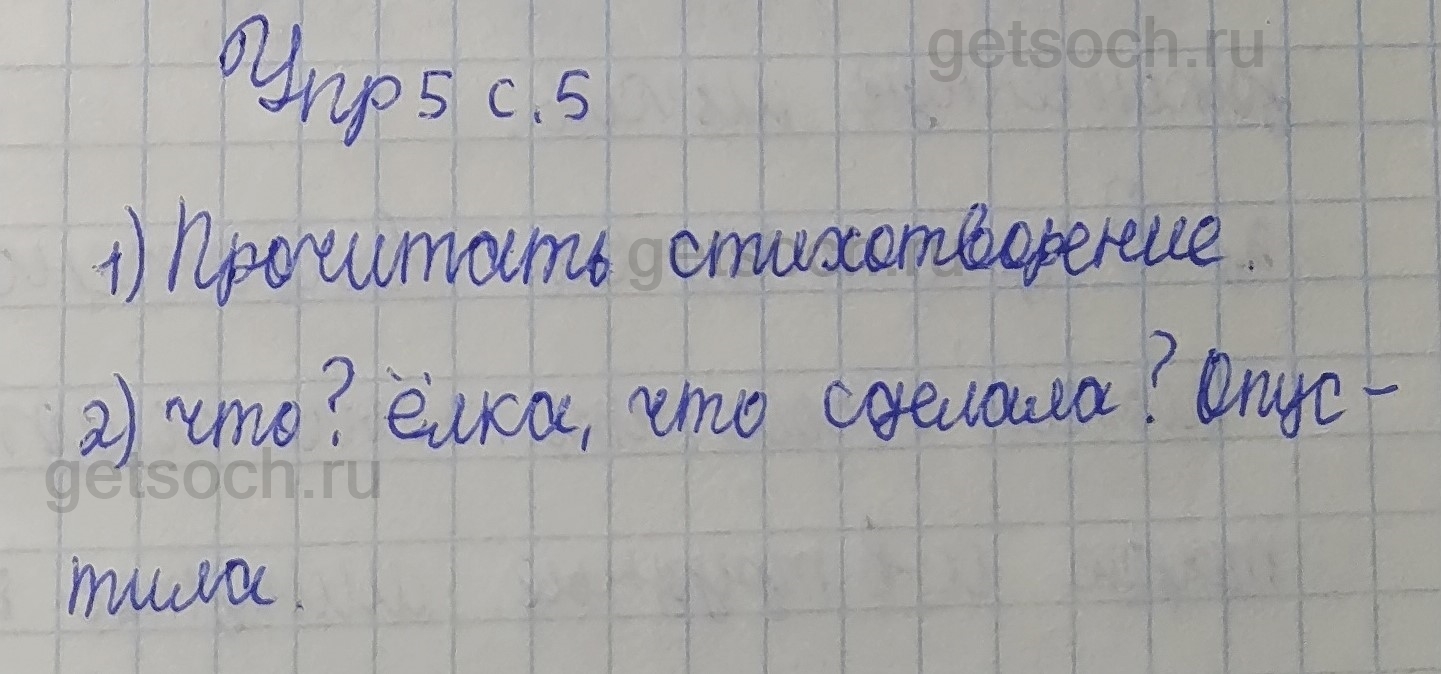 getsoch.ru
Упр 5 с. 5
1) Прочитать стихотворение.
getsoch.ru
2) что? ёлка, что сделала? Опус-
getsoch.ru
тила.
getsoch.ru